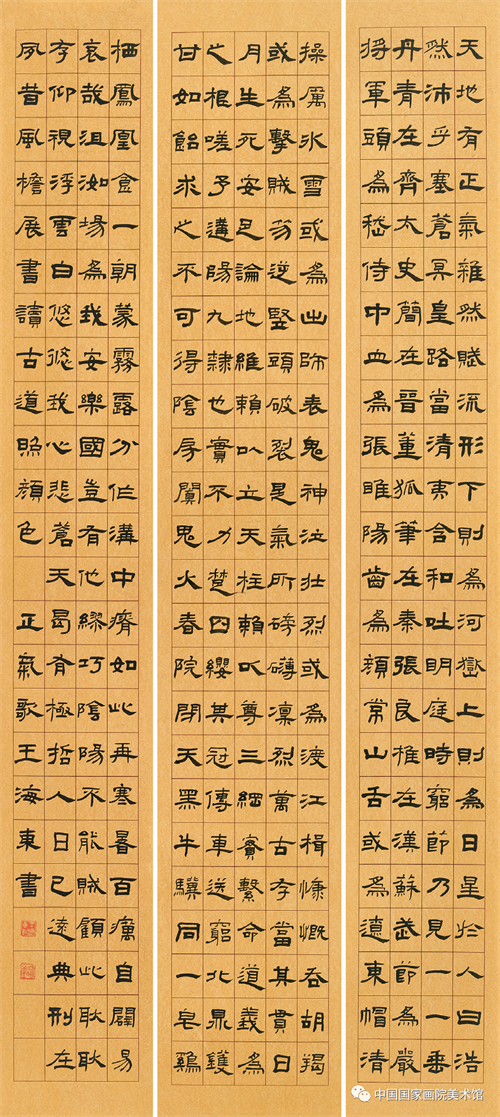 天地有正氣雜然賦流形下則為河嶽上則為日星於人曰浩
然沛乎塞蒼冥皇路當清夷含和吐明庭時窮節乃見一一垂
丹青在齊太史簡在晉董狐筆在秦張良椎在漢蘇武節為嚴
將軍頭為嵇侍中血為張睢陽齒為顏常山舌或為遼東帽清
操厲冰雪或為出師表鬼神泣壯烈或為渡江楫慷慨吞胡羯
或為擊賊笏逆豎頭破裂是氣所磅礴凜烈萬古存當其貫日
月生死安足論地維賴以立天柱賴以尊三綱實繫命道義為
之根嗟予遘陽九隸也實不力楚囚纓其冠傳車送窮北鼎鑊
甘如飴求之不可得陰房闃鬼火春院閉天黑牛驥同一皂雞
栖鳳凰食一朝蒙霧露分作溝中瘠如此再寒暑百癘自闢易
哀哉沮洳場為我安樂國豈有他繆巧陰陽不能賊顧此耿耿
存仰視浮雲白悠悠我心悲蒼天曷有極哲人日已遠典刑在
夙昔風檐展書讀古道照顏色 正氣歌王海東書
中国国家画院美术馆